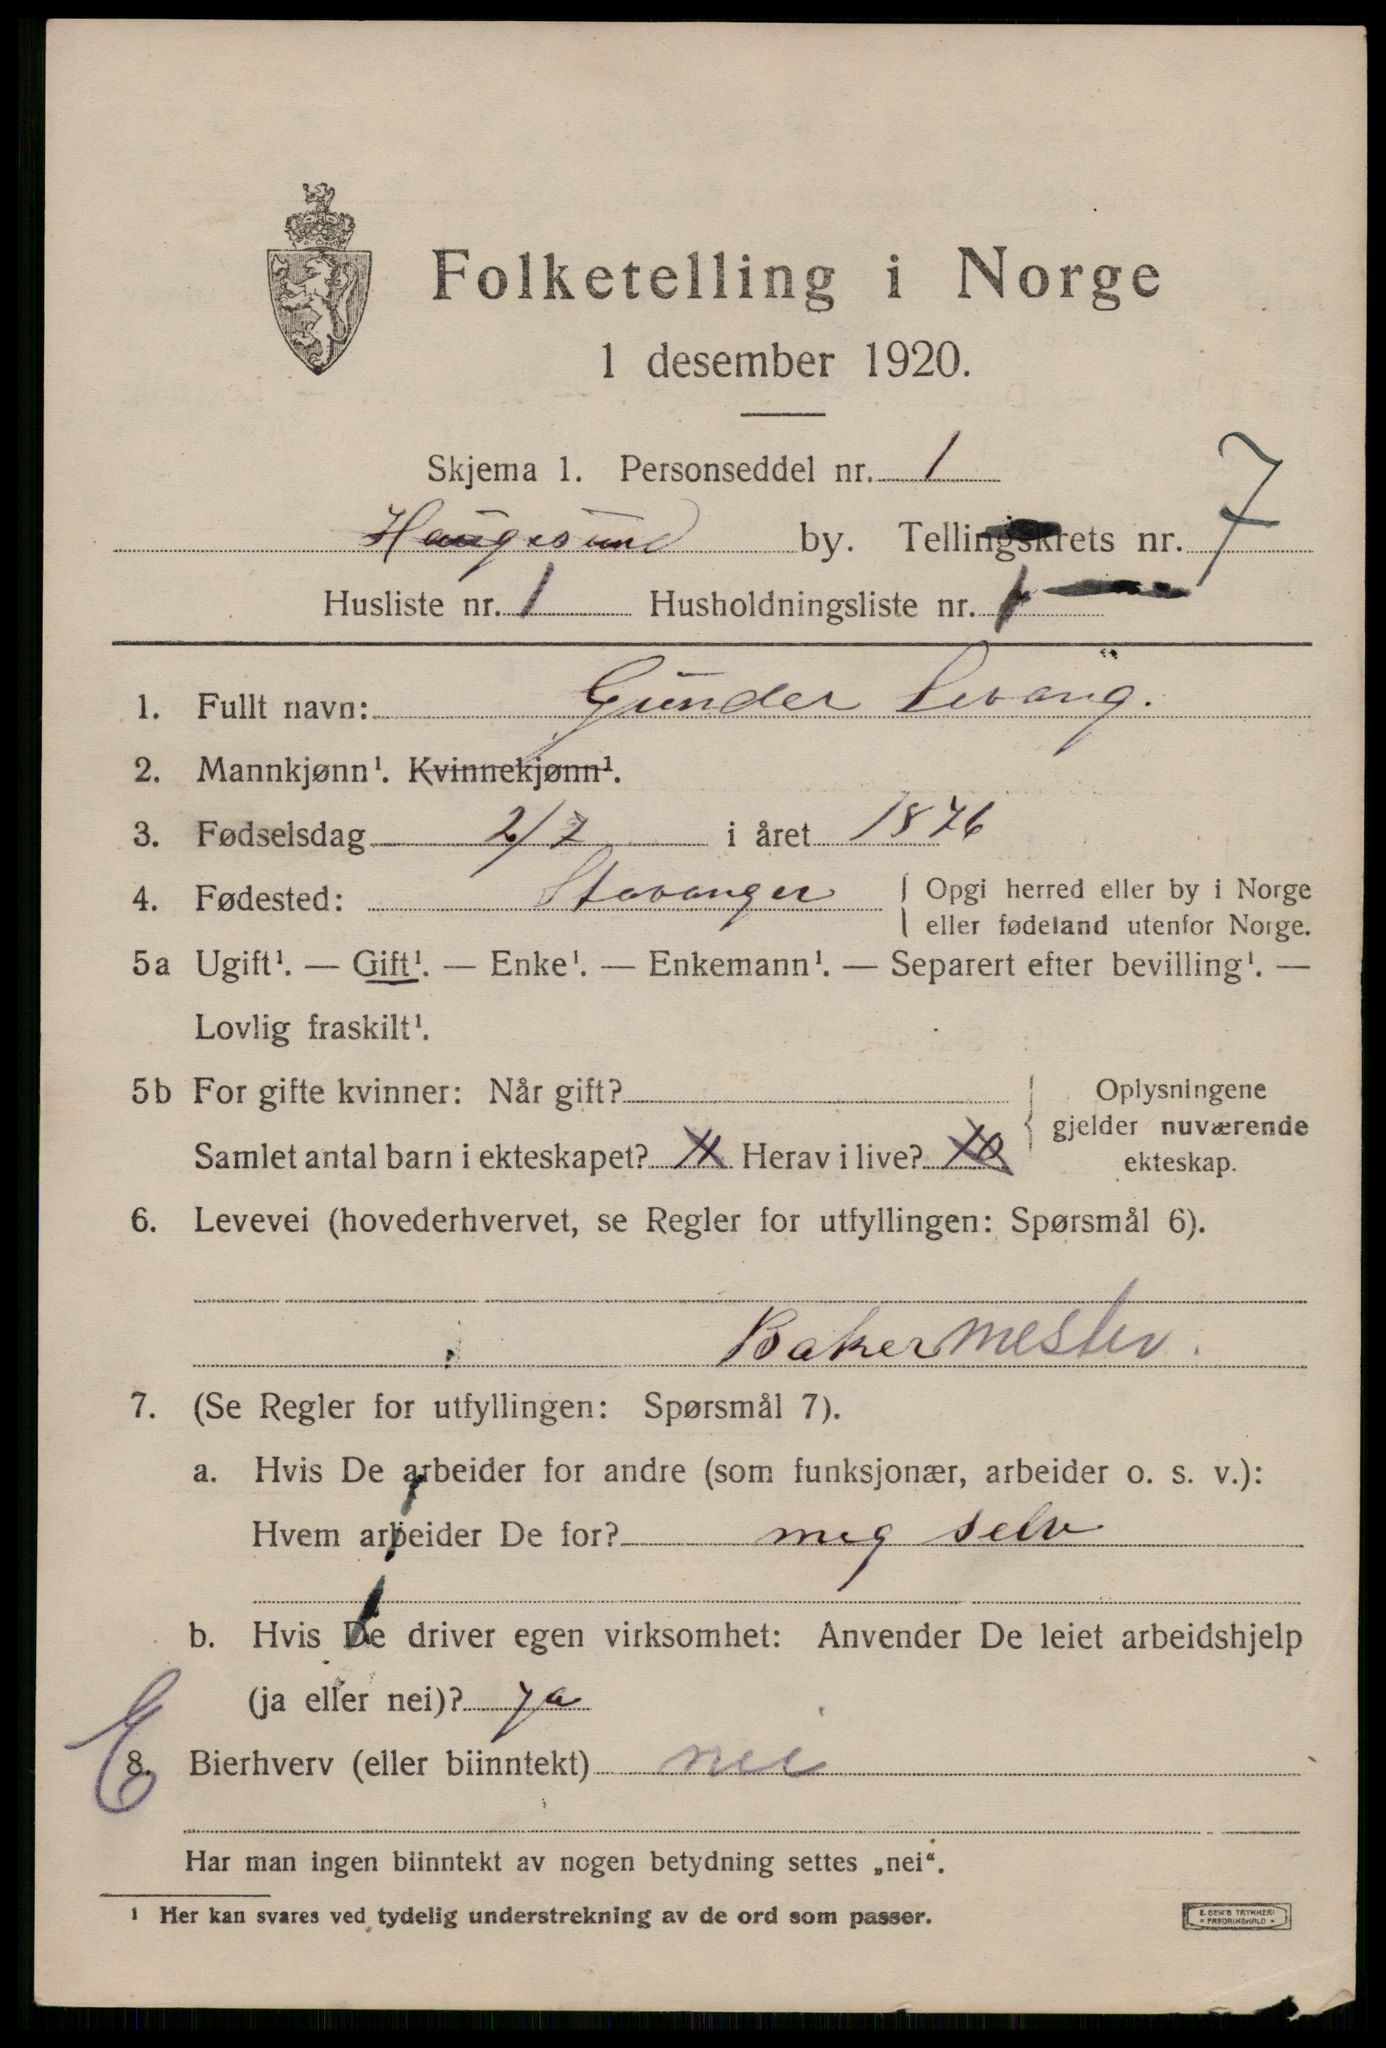 Folketelling i Norge
1 desember 1920.
Skjema 1. Personseddel nr. 1
Haugesund by. Tellingskrets nr. 7
Husliste nr. 1 Husholdningsliste nr. 1
1. Fullt navn: Gunder Levang.
2. Mannkjønn¹. Kvinnekjønn¹.
3. Fødselsdag 2/7 i året 1876
4. Fødested: Stavanger { Opgi herred eller by i Norge
eller fødeland utenfor Norge.
5a Ugift¹. — Gift¹. — Enke¹. — Enkemann¹. — Separert efter bevilling¹. —
Lovlig fraskilt¹.
5b For gifte kvinner: Når gift? { Oplysningene
gjelder nuværende
Samlet antal barn i ekteskapet? 11 Herav i live? 10 ekteskap.
6. Levevei (hovederhvervet, se Regler for utfyllingen: Spørsmål 6).
Bakermester.
7. (Se Regler for utfyllingen: Spørsmål 7).
a. Hvis De arbeider for andre (som funksjonær, arbeider o. s. v.):
Hvem arbeider De for? meg selv
b. Hvis De driver egen virksomhet: Anvender De leiet arbeidshjelp
(ja eller nei)? ja
E
8. Bierhverv (eller biinntekt) nei
Har man ingen biinntekt av nogen betydning settes „nei“.
¹ Her kan svares ved tydelig understrekning av de ord som passer.
E. SEM'S TRYKKERI
* FREDRIKSHALD *